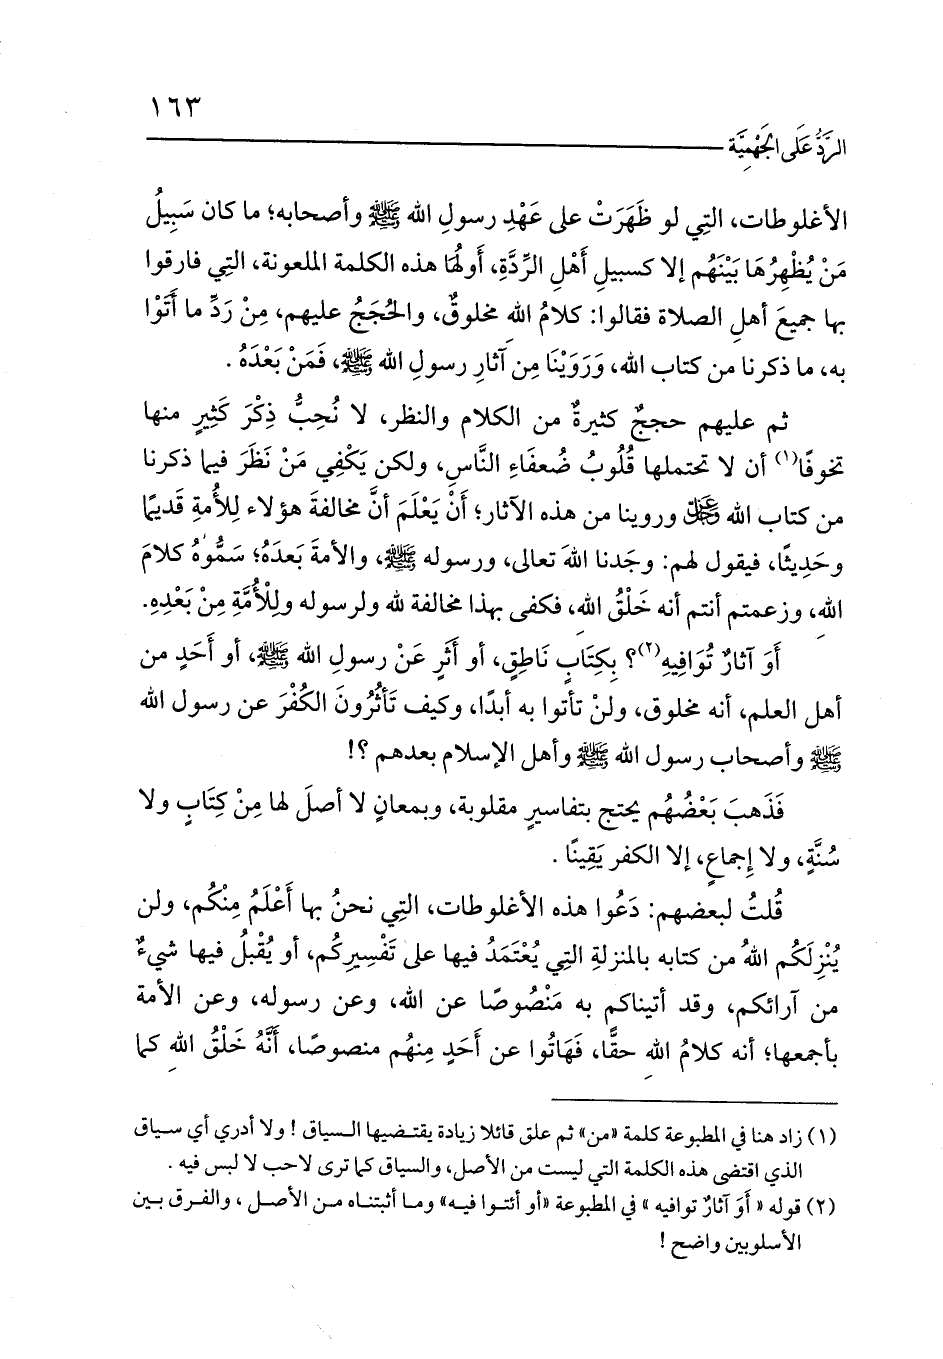 ١٦٣
الرَّدُّ عَلَى الجَهْمِيَّة
الأغلوطات، التِي لو ظَهَرَتْ على عَهْدِ رسولِ الله ﷺ وأصحابه؛ ما كان سَبِيلُ
مَنْ يُظْهِرُهَا بَيْنَهُم إلا كسبيلِ أَهْلِ الرِّدَّةِ، أَولُهَا هذه الكلمة الملعونة، التِي فارقوا
بها جميعَ أهلِ الصلاة فقالوا: كلامُ اللهِ مخلوقٌ، والحُجَجُ عليهم، مِنْ رَدِّ ما أَتَوْا
به، ما ذكرنا من كتاب الله، وَرَوَيْنَا مِن آثارِ رسولِ الله ﷺ، فَمَنْ بَعْدَهُ.
ثم عليهم حججٌ كثيرةٌ من الكلام والنظر، لا نُحِبُّ ذِكْرَ كَثِيرٍ منها
تخوفًا(١) أن لا تحتملها قُلُوبُ ضُعفَاءِ النَّاسِ، ولكن يَكْفِي مَنْ نَظَرَ فيما ذكرنا
من كتاب الله ﷻ وروينا من هذه الآثار؛ أَنْ يَعْلَمَ أنَّ مخالفةَ هؤلاء لِلأُمةِ قديمًا
وحَدِيثًا، فيقول لهم: وجَدنا اللهَ تعالى، ورسوله ﷺ، والأمةَ بَعدَهُ؛ سَمُّوْهُ كلامَ
اللهِ، وزعمتم أنتم أنه خَلْقُ اللهِ، فكفى بهذا مخالفة لله ولرسوله ولِلْأُمَّةِ مِنْ بَعْدِهِ.
أَوَ آثارٌ تُوَافِيهِ(٢)؟ بِكِتَابٍ نَاطِقٍ، أو أَثَرٍ عَنْ رسولِ الله ﷺ، أو أَحَدٍ من
أهل العلم، أنه مخلوق، ولنْ تأتوا به أبدًا، وكيف تَأْثُرُونَ الكُفْرَ عن رسول الله
ﷺ وأصحاب رسول الله ﷺ وأهل الإسلام بعدهم ؟!
فَذَهبَ بَعْضُهُم يحتج بتفاسيرٍ مقلوبة، وبمعانٍ لا أصلَ لها مِنْ كِتَابٍ ولا
سُنَّةٍ، ولا إِجماعٍ، إلا الكفر يَقِينًا.
قُلتُ لبعضهم: دَعُوا هذه الأغلوطات، التي نحنُ بها أَعْلَمُ مِنْكُم، ولن
يُنْزِلَكُم اللهُ من كتابه بالمنزلةِ التِي يُعْتَمَدُ فيها على تَفْسِيرِكُم، أو يُقْبلُ فيها شيءٌ
من آرائكم، وقد أتيناكم به مَنْصُوصًا عن الله، وعن رسوله، وعن الأمة
بأجمعها؛ أنه كلامُ اللهِ حقًّا، فَهَاتُوا عن أَحَدٍ مِنهُم منصوصًا، أَنَّهُ خَلْقُ اللهِ كما
(١) زاد هنا في المطبوعة كلمة «من» ثم علق قائلا زيادة يقتضيها السياق ! ولا أدري أي سياق
الذي اقتضى هذه الكلمة التي ليست من الأصل، والسياق كما ترى لاحب لا لبس فيه .
(٢) قوله « أَوَ آثارٌ توافيه » في المطبوعة «أو أئتوا فيه» وما أثبتناه من الأصل ، والفرق بين
الأسلوبين واضح !